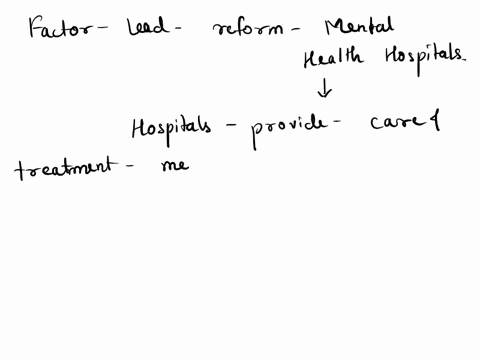 Factor - lead - reform - Mental
Health Hospitals.
↓
Hospitals - provide - care &
treatment - me